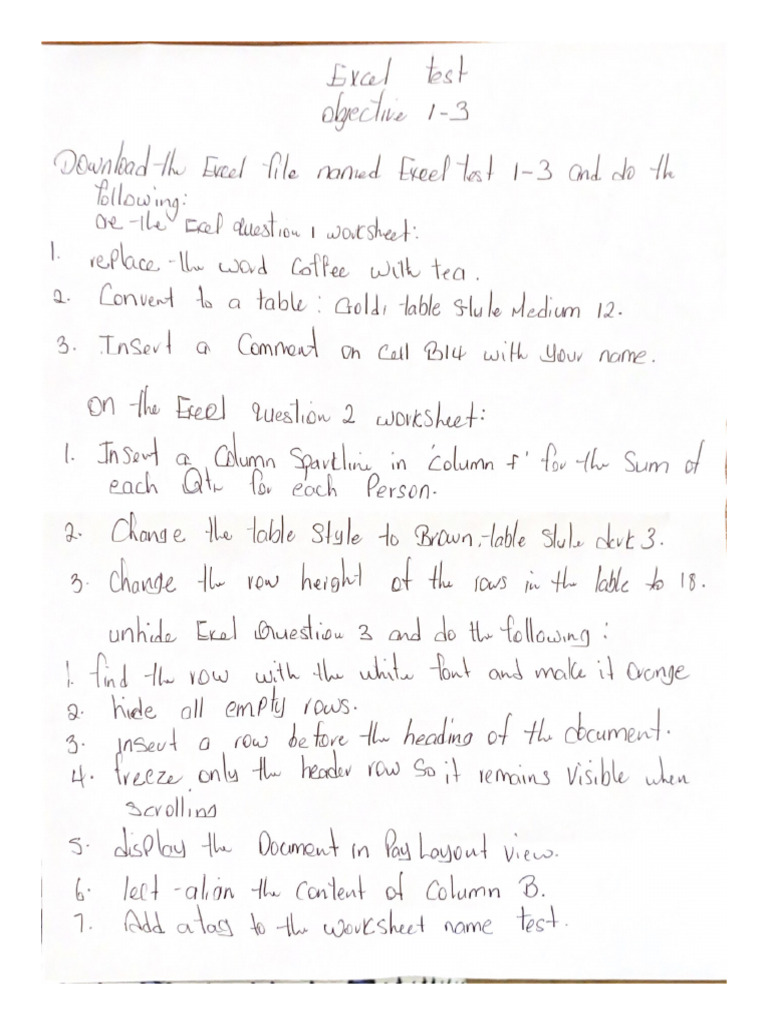 Excel test
objective 1-3
Download the Excel file named Excel test 1-3 and do the
following:
one the Excel question 1 worksheet:
1. replace the word Coffee with tea.
2. Convent to a table: Gold, table Stule Medium 12.
3. Insert a Comment on Cell B14 with your name.
on the Excel question 2 worksheet:
1. Insert a Column Sparkline in 'column f' for the Sum of
each Qtr for each Person.
2. Change the table Style to Brown, table Stule dark 3.
3. Change the row height of the rows in the table to 18.
unhide Exel Question 3 and do the following:
1. find the row with the white font and make it Orange
2. hide all empty rows.
3. insert a row before the heading of the document.
4. freeze only the header row So it remains visible when
scrolling
5. display the Document in Pay Layout view.
6. left-align the content of Column B.
7. Add a tag to the worksheet name test.